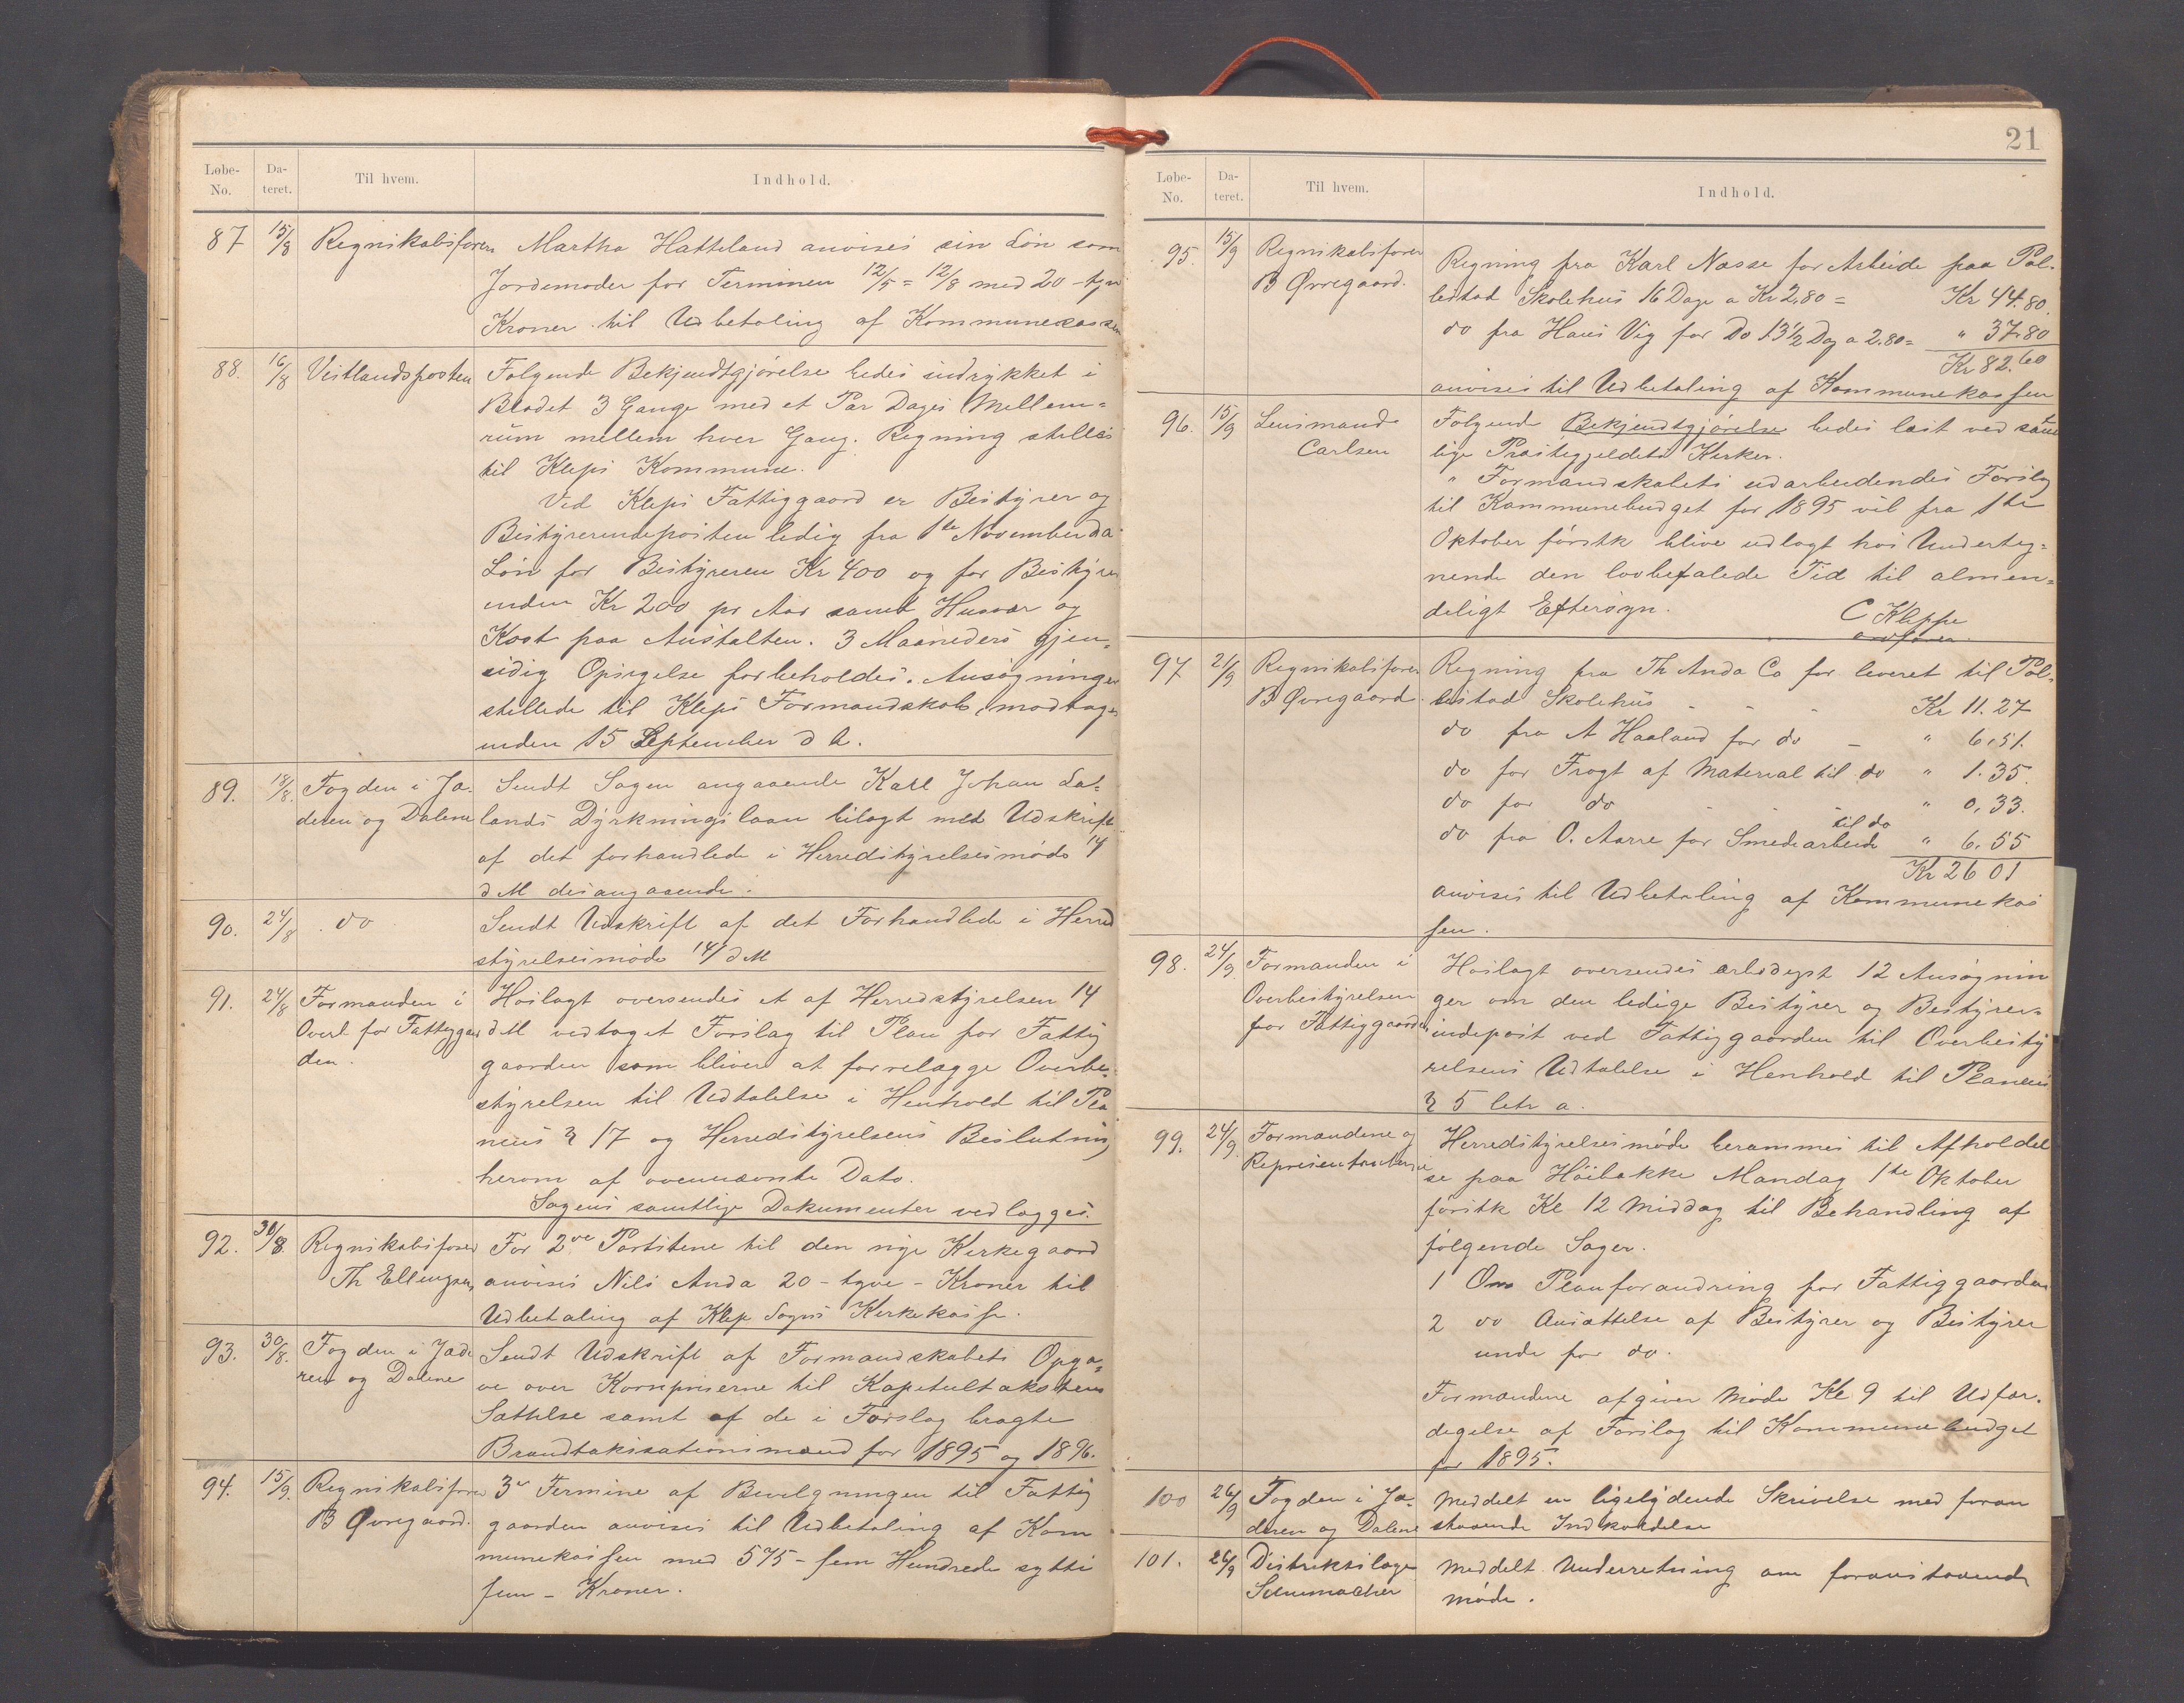 Løbe-No. Da-teret. Til hvem. Indhold.
87 15/8 Regnskabsfører Martha Hatteland anvises sin Løn som
Jordemoder for Terminen 12/5 = 12/8 med 20 - tyve
Kroner til Udbetaling af Kommunekassen
88. 16/8 Vestlandsposten Følgende Bekjendtgjørelse bedes indrykket i
Bladet 3 Gange med et Par Dages Mellem=
rum mellem hver Gang. Regning stilles
til Kleps Kommune.
Ved Kleps Fattiggaard er Bestyrer og
Bestyrerindeposten ledig fra 1ste November d a
Løn for Bestyreren Kr 400 og for Bestyrer
inden Kr 200 pr Aar samt Husvær og
Kost paa Anstalten. 3 Maaneders gjen=
sidig Opsigelse forbeholdes. Ansøgninger
stillede til Kleps Formandskab, modtages
inden 15 September d A.
89. 18/8. Fogden i Ja- Sendt Sagen angaaende Karl Johan La=
deren og Dalene lands Dyrkningslaan bilagt med Udskrift
af det forhandlede i Herredstyrelsesmøde 14
d M desangaaende.
90. 24/8 do Sendt Udskrift af det Forhandlede i Herred
styrelsesmøde 14/ d M
91. 24/8 Formanden i Hoslagt oversendes et af Herredstyrelsen 14
Overb. for Fattiggaar d M vedtaget Forslag til Plan for Fattig
den. gaarden som bliver at forrelægge Overbe=
styrelsen til Udtalelse i Henhold til Pla
nens § 17 og Herredstyrelsens Beslutning
herom af ovennævnte Dato.
Sagens samtlige Dokumenter vedlægges.
92. 30/8. Regnskabsfører For 2de Portstene til den nye Kirkegaard
Th Ellingsen anvises Nils Anda 20 - tyve - Kroner til
Udbetaling af Klep Sogns Kirkekasse.
93. 30/8. Fogden i Jæde Sendt Udskrift af Formandskabets Opga=
ren og Dalene ve over Kornpriserne til Kapitultakstens
Sættelse samt af de i Forslag bragte
Brandtaksationsmænd for 1895 og 1896.
94. 15/9. Regnskabsfører 3die Termine af Bevilgningen til Fattig
B Øvregaard. gaarden anvises til Udbetaling af Kom
munekassen med 575 - fem Hundrede sytti
fem - Kroner.
21
Løbe-No. Da-teret. Til hvem. Indhold.
95. 15/9 Regnskabsfører Regning fra Karl Næsse for Arbeide paa Pol-
B Øvregaard. lestad Skolehus 16 Dage a Kr 2,80 = Kr 44.80.
do fra Hans Vig for Do 13½ Dag a 2.80 = " 37.80
Kr 82.60
anvises til Udbetaling af Kommunekassen
96. 15/9 Lensmand Følgende Bekjendtgjørelse bedes læst ved samt
Carlsen lige Præstegjeldets Kirker.
" Formandskabets udarbeidendes Forslag
til Kommunebudget for 1895 vil fra 1ste
Oktober førstk blive udlagt hos Underteg=
nende den lovbefalede Tid til almen=
deligt Eftersyn.
C Kleppe
ordfører.
97 21/9 Regnskabsfører Regning fra Th Anda Co for leveret til Pol=
B Øvregaard. lestad Skolehus - - - Kr 11.27
do fra A Haaland for do - " 6,51.
do for Fragt af Material til do " 1.35.
do for do - - - " 0,33.
do fra O. Aarre for Smedearbeide til do " 6,55
Kr 26 01
anvises til Udbetaling af Kommunekas
sen.
98. 24/9 Formanden i Hoslagt oversendes ærbødigst 12 Ansøgnin
Overbestyrelsen ger om den ledige Bestyrer og Bestyrer=
for Fattiggaarden indepost ved Fattiggaarden til Overbesty
relsens Udtalelse i Henhold til Planens
§ 5 letr a.
99. 24/9. Formændene og Herredstyrelsesmøde berammes til Afholdel
Representanterne se paa Høibakke Mandag 1ste Oktober
førstk Kl 12 Middag til Behandling af
følgende Sager.
1 Om Planforandring for Fattiggaarden
2 do Ansættelse af Bestyrer og Bestyrer
inde for do.
Formændene afgiver Møde Kl 9 til Udfær-
degelse af Forslag til Kommunebudget
for 1895.
100 26/9 Fogden i Jæ- Meddelt en ligelydende Skrivelse med foran
deren og Dalene staaende Indkaldelse
101. 26/9 Distriktslæge Meddelt Underretning om foranstaaende
Schumacher møde.